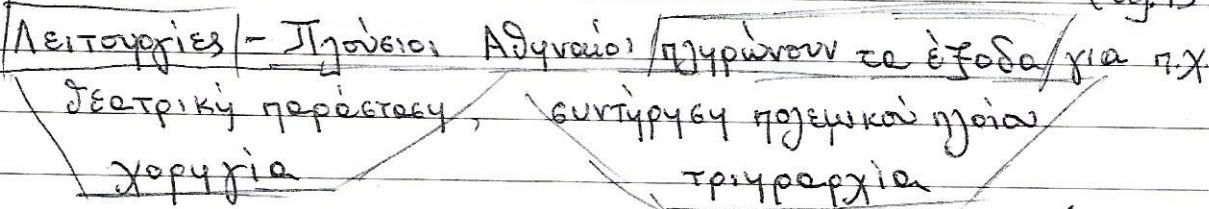 Λειτουργίες - Πλούσιοι Αθηναίοι πληρώνουν τα έξοδα για π.χ.
θεατρική παράσταση, συντήρηση πολεμικού πλοίου
χορηγία τριηραρχία